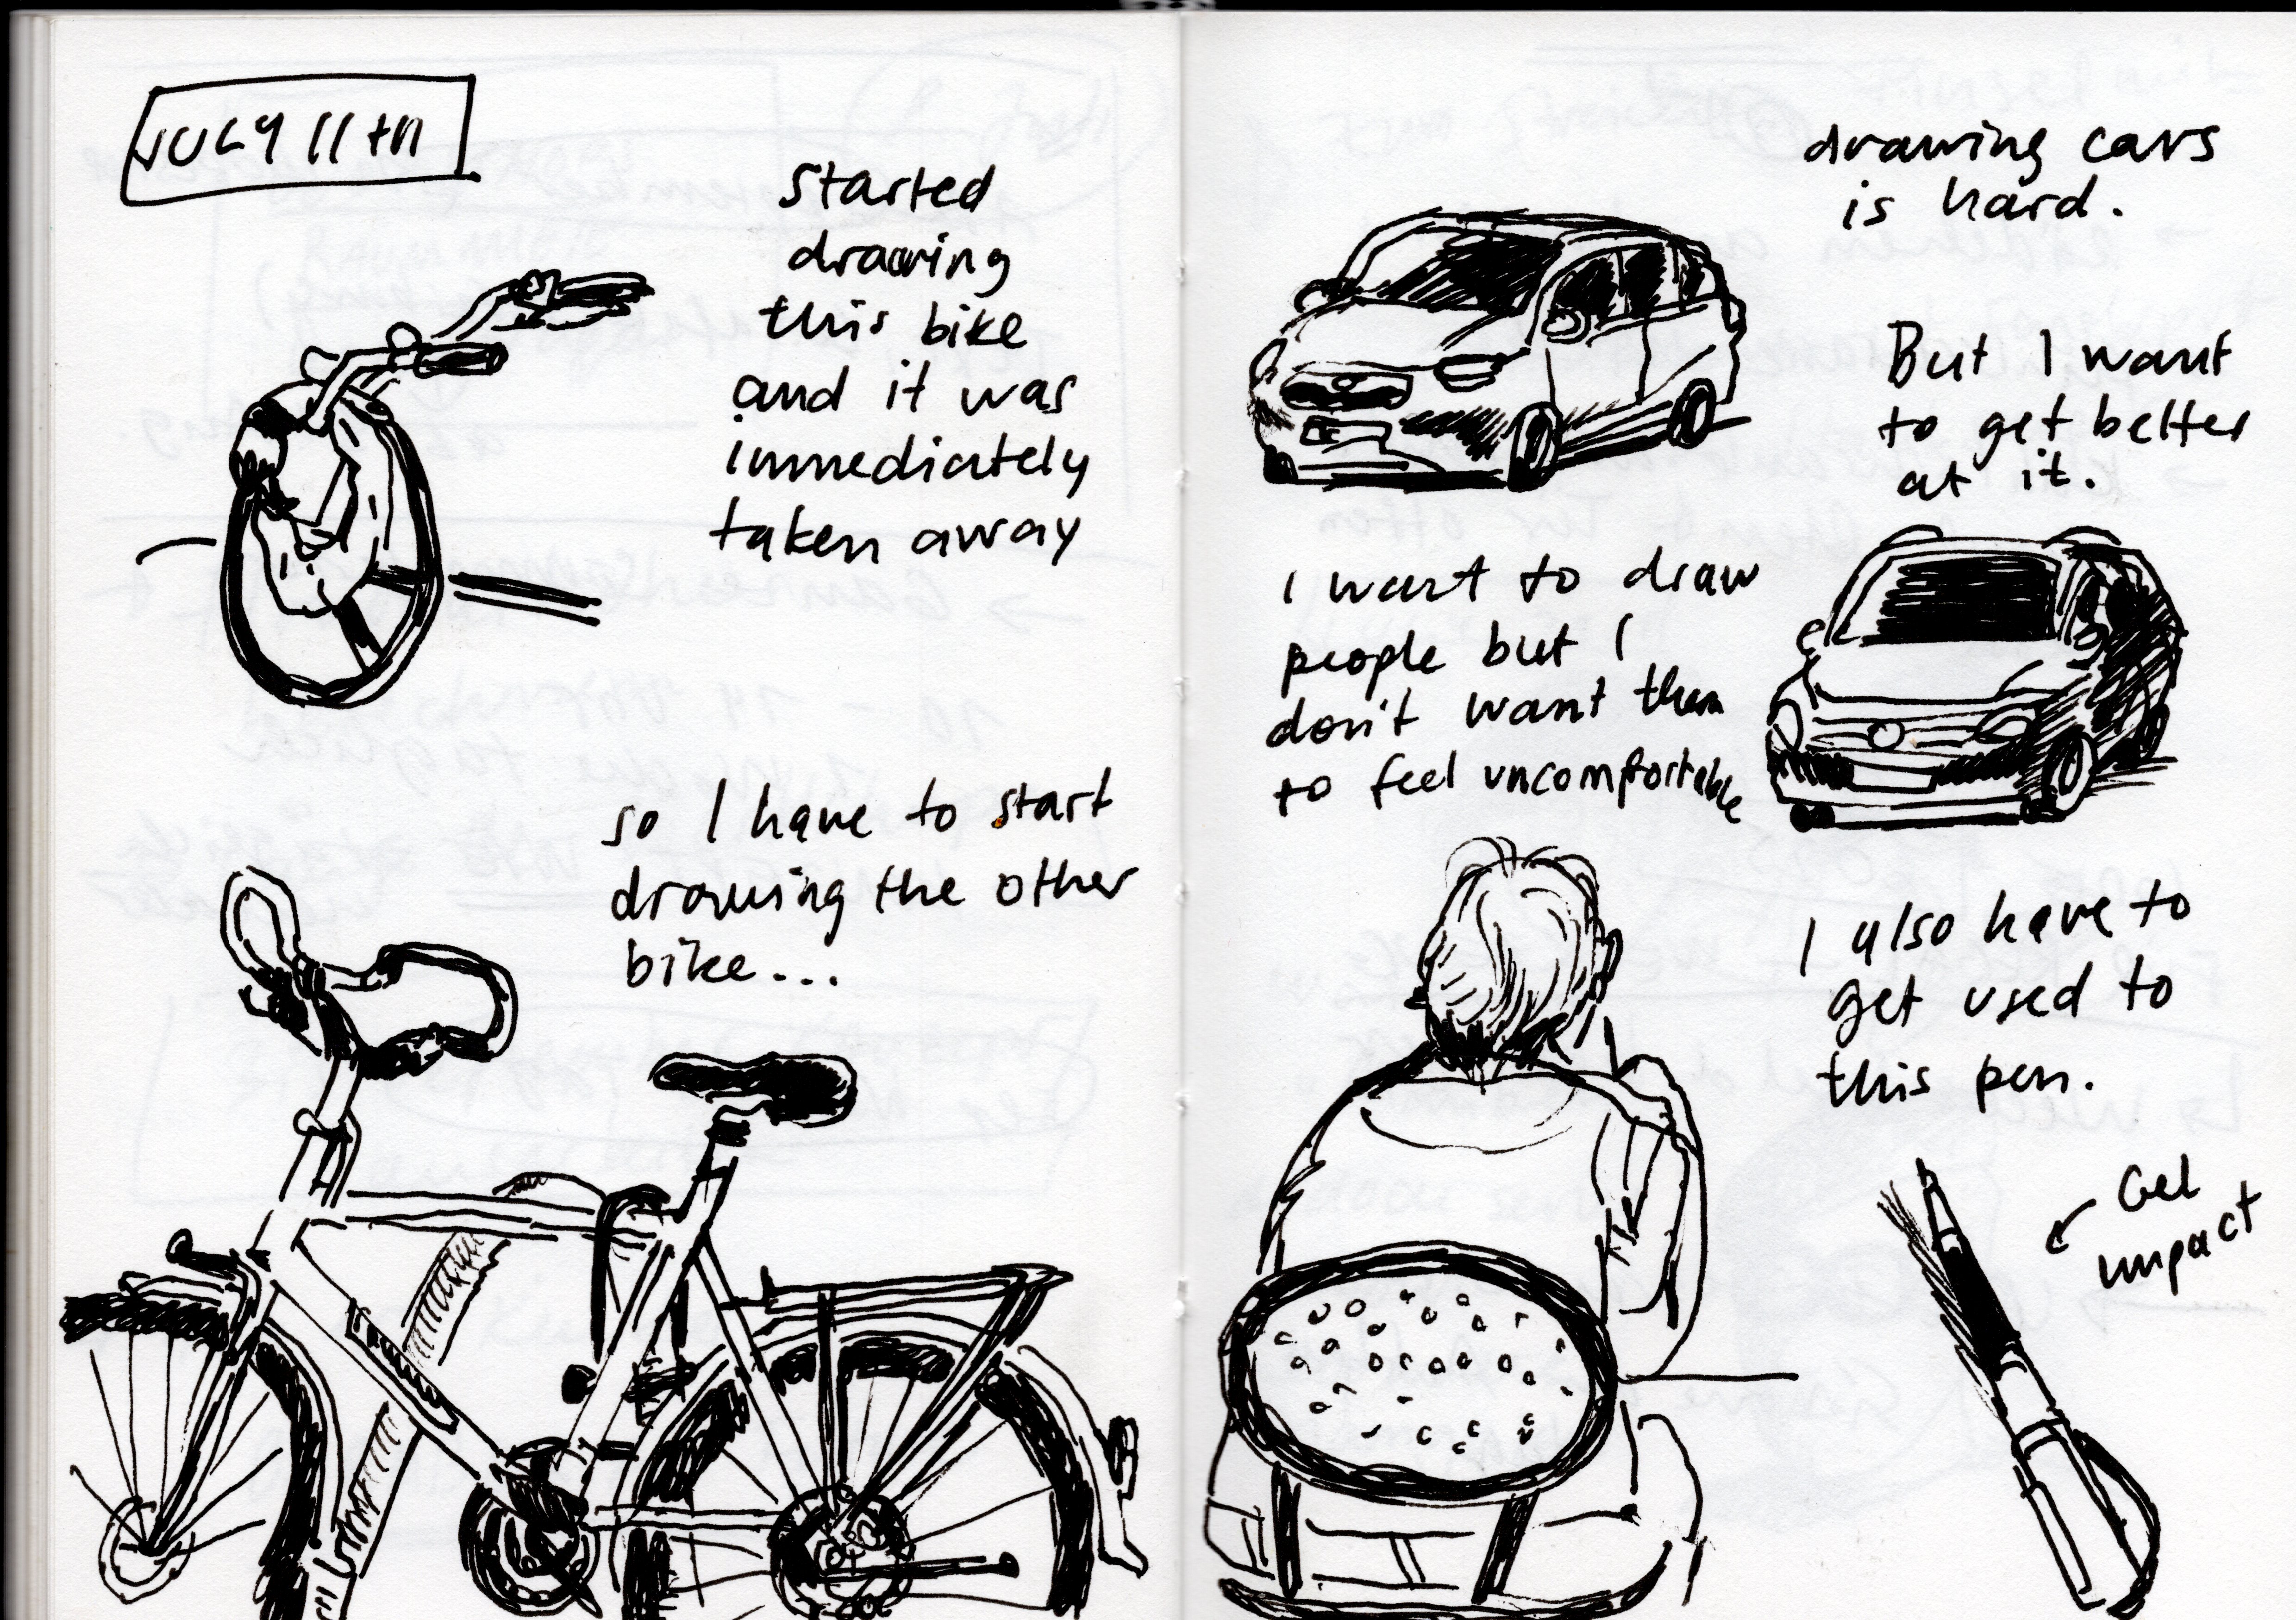 JULY 11th
started
drawing
this bike
and it was
immediately
taken away
so I have to start
drawing the other
bike...
drawing cars
is hard.
But I want
to get better
at it.
I want to draw
people but I
don't want them
to feel uncomfortable
I also have to
get used to
this pen.
Gel
impact